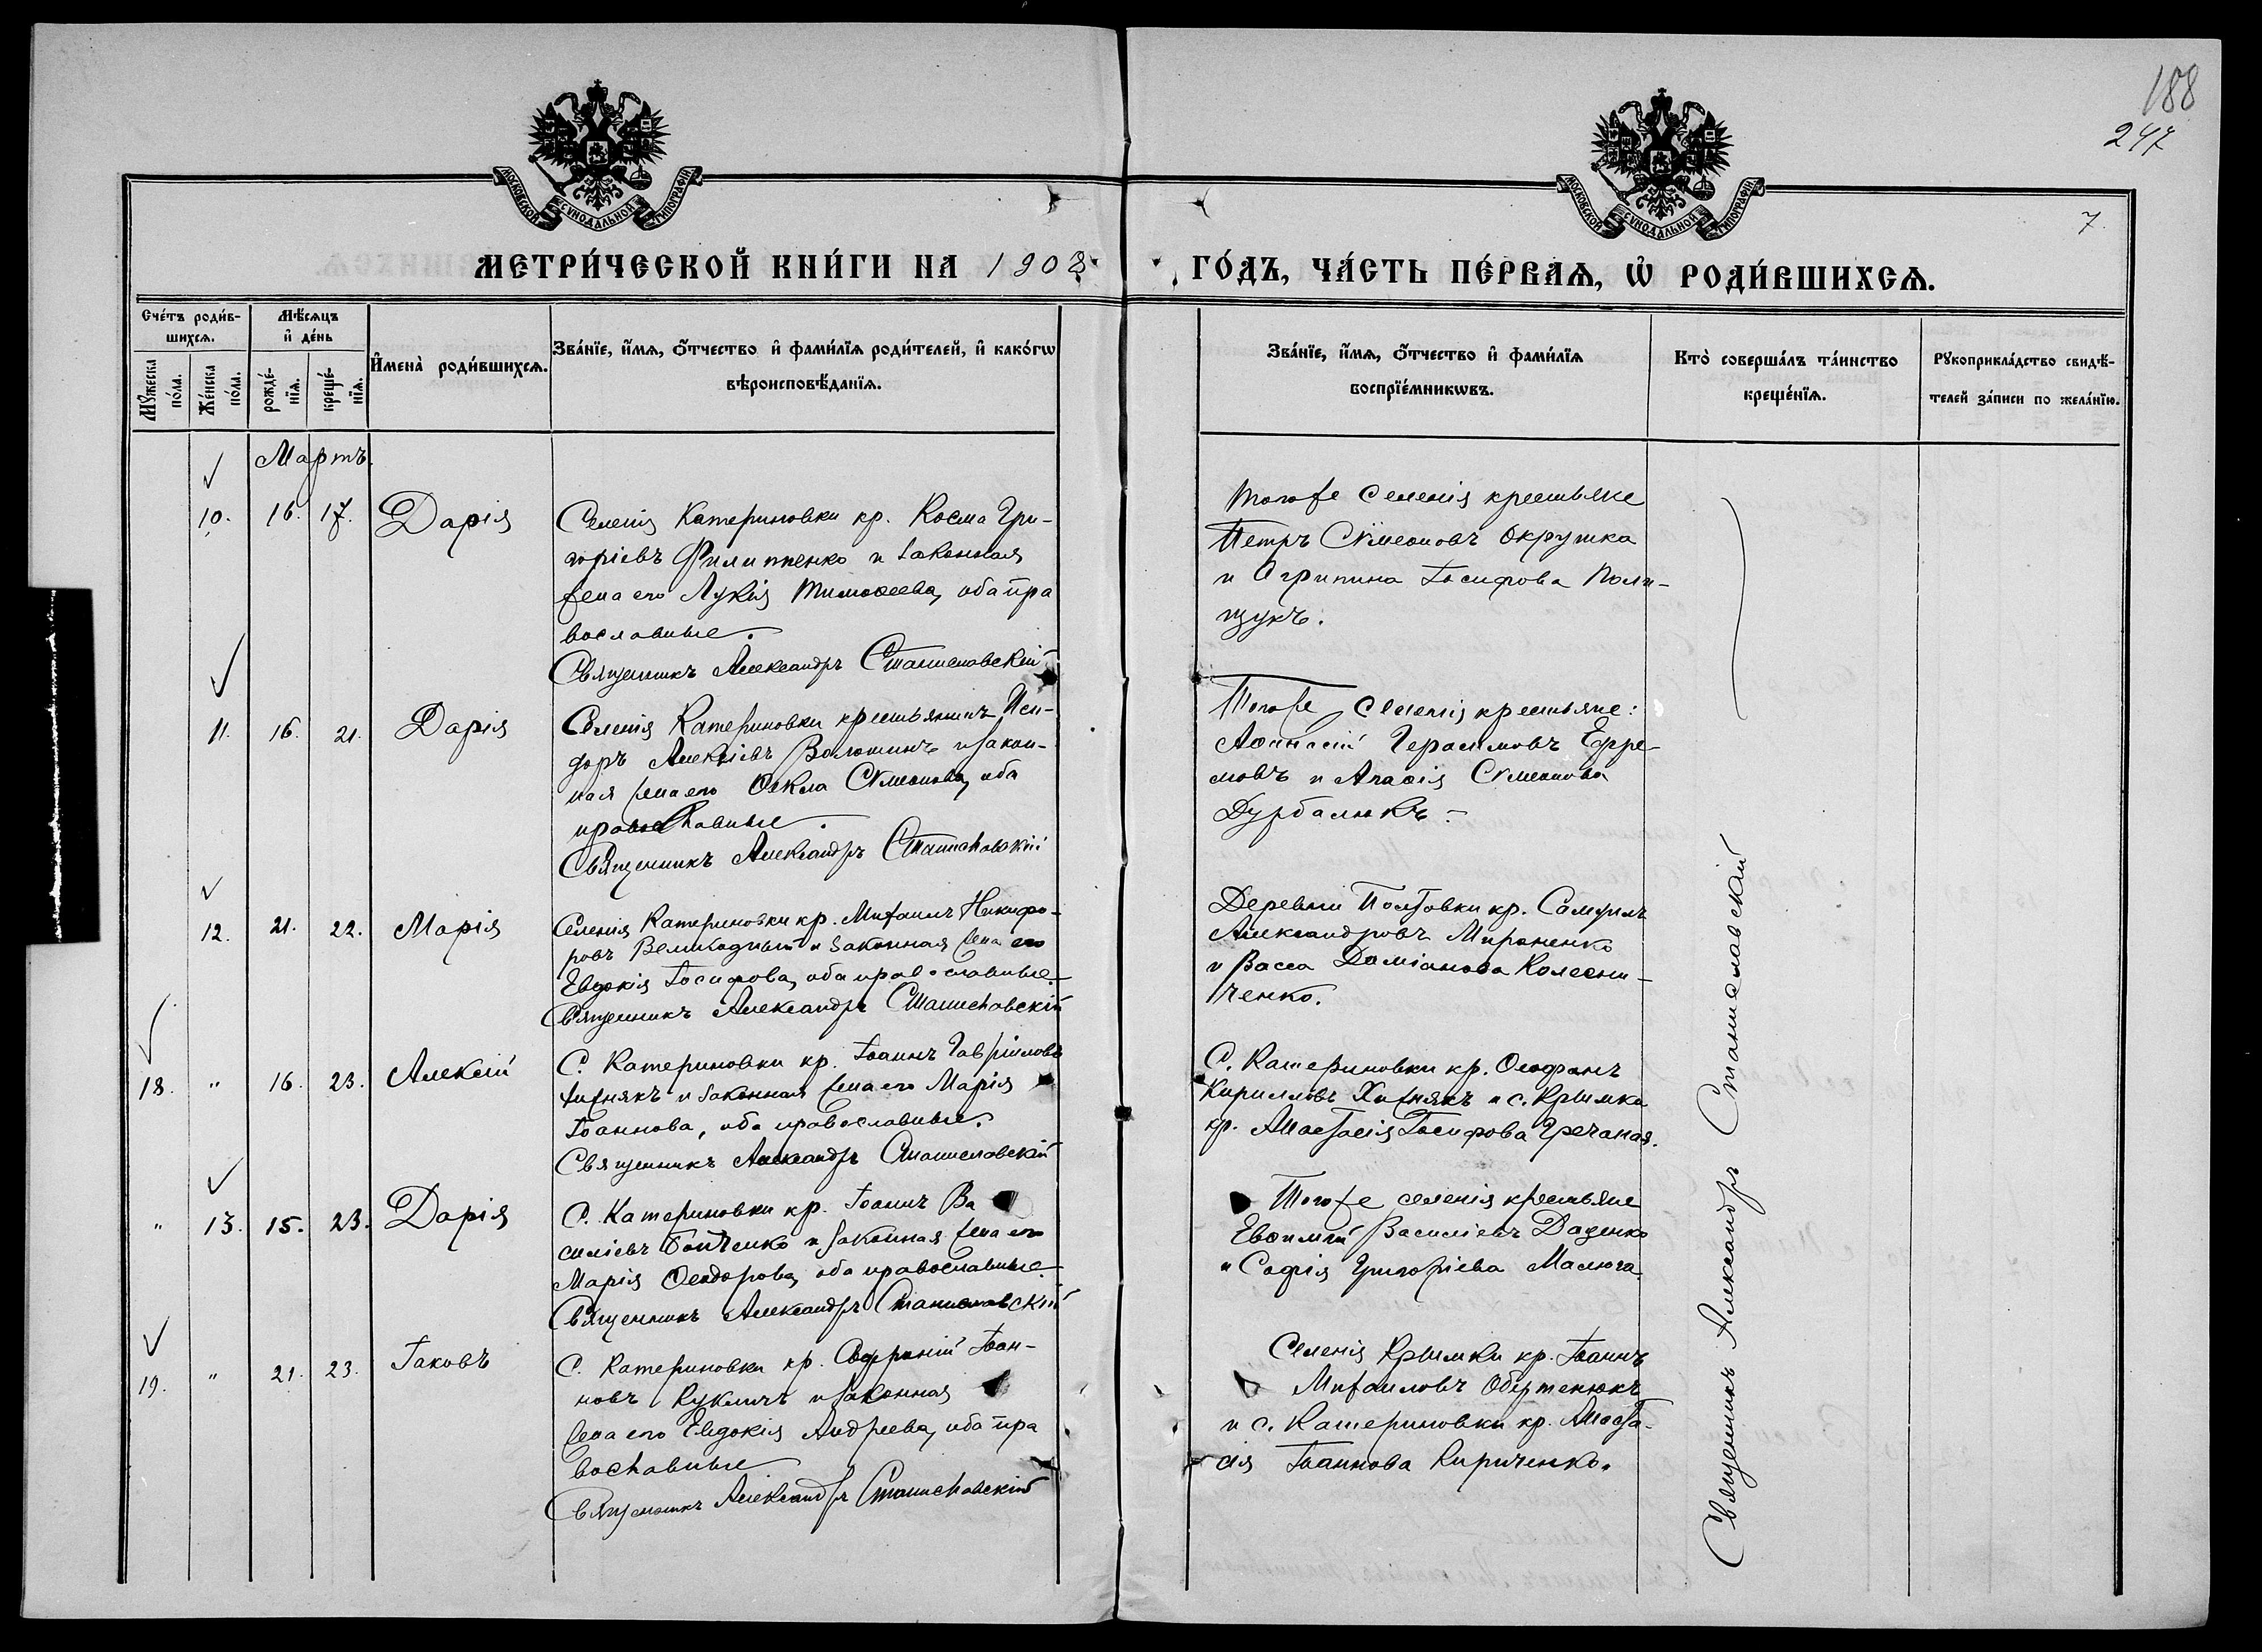 188
247
7.
МОСКОВСКОЙ СѴНОДАЛЬНОЙ ТИПОГРАФІИ
МОСКОВСКОЙ СѴНОДАЛЬНОЙ ТИПОГРАФІИ
МЕТРИ́ЧЕСКОЙ КНИ́ГИ НА 1902
ГО́ДЪ, ЧА́СТЬ ПЕ́РВАѦ, Ѡ РОДИ́ВШИХСѦ.
Сче́тъ роди́в-
шихсѧ.
Мꙋ́жеска
по́ла.
Же́нска
по́ла.
Мѣ́сѧцъ
и҆ де́нь
рожде́-
нїѧ.
креще́-
нїѧ.
И҆мена̀ роди́вшихсѧ.
Зва́нїе, и҆́мѧ, ѻ҆́тчество и҆ фами́лїѧ роди́телей, и҆ како́гѡ
вѣроисповѣ́данїѧ.
Зва́нїе, и҆́мѧ, ѻ҆́тчество и҆ фами́лїѧ
воспрїе́мникѡвъ.
Кто̀ соверша́лъ та́инство
креще́нїѧ.
Рꙋкоприкла́дство свидѣ́-
телей за́писи по жела́нїю.
Мартъ.
10. 16. 17. Дарія
Селенія Катериновки кр. Косма Гри-
горіевъ Филиппенко и законная
жена его Лукія Тимоѳеева, оба пра
вославные.
Священникъ Александръ Станиславскій
Тогоже селенія крестьяне
Петръ Сѵмеоновъ Окрушка
и Агрипина Іосифова Поли-
щукъ.
11. 16. 21. Дарія
Селенія Катериновки крестьянинъ Иси-
доръ Алексіевъ Волошинъ и закон-
ная жена его Ѳекла Сѵмеонова, оба
православные.
Священникъ Александръ Станиславскій
Тогоже селенія крестьяне:
Аѳанасій Герасимовъ Ефре-
мовъ и Агаѳія Сѵмеонова
Дурбалюкъ.
12. 21. 22. Марія
Селенія Катериновки кр. Михаилъ Никифо-
ровъ Великодный и законная жена его
Евдокія Іосифова, оба православные.
Священникъ Александръ Станиславскій
Деревни Полтовки кр. Самуилъ
Александровъ Мироненко
и Васса Даміанова Колесни-
ченко.
18. " 16. 23. Алексій
С. Катериновки кр. Іоаннъ Гавріиловъ
Хижнякъ и законная жена его Марія
Іоаннова, оба православные.
Священникъ Александръ Станиславскій
С. Катериновки кр. Ѳеофанъ
Кирилловъ Хижнякъ и с. Крымки
кр. Анастасія Іосифова Гречаная.
" 13. 15. 23. Дарія
С. Катериновки кр. Іоаннъ Ва
силіевъ Бойченко и законная жена его
Марія Ѳеодорова, оба православные.
Священникъ Александръ Станиславскій
Тогоже селенія крестьяне
Евѳимій Василіевъ Даценко
и Софія Григоріева Малюга.
19. " 21. 23. Іаковъ
С. Катериновки кр. Софроній Іоан-
новъ Куклинъ и законная
жена его Евдокія Андреева, оба пра
вославные
Священникъ Александръ Станиславскій
Селенія Крымки кр. Іоаннъ
Михаиловъ Обертенюкъ
и с. Катериновки кр. Анаста-
сія Іоаннова Кириченко.
Священникъ Александръ Станиславскій